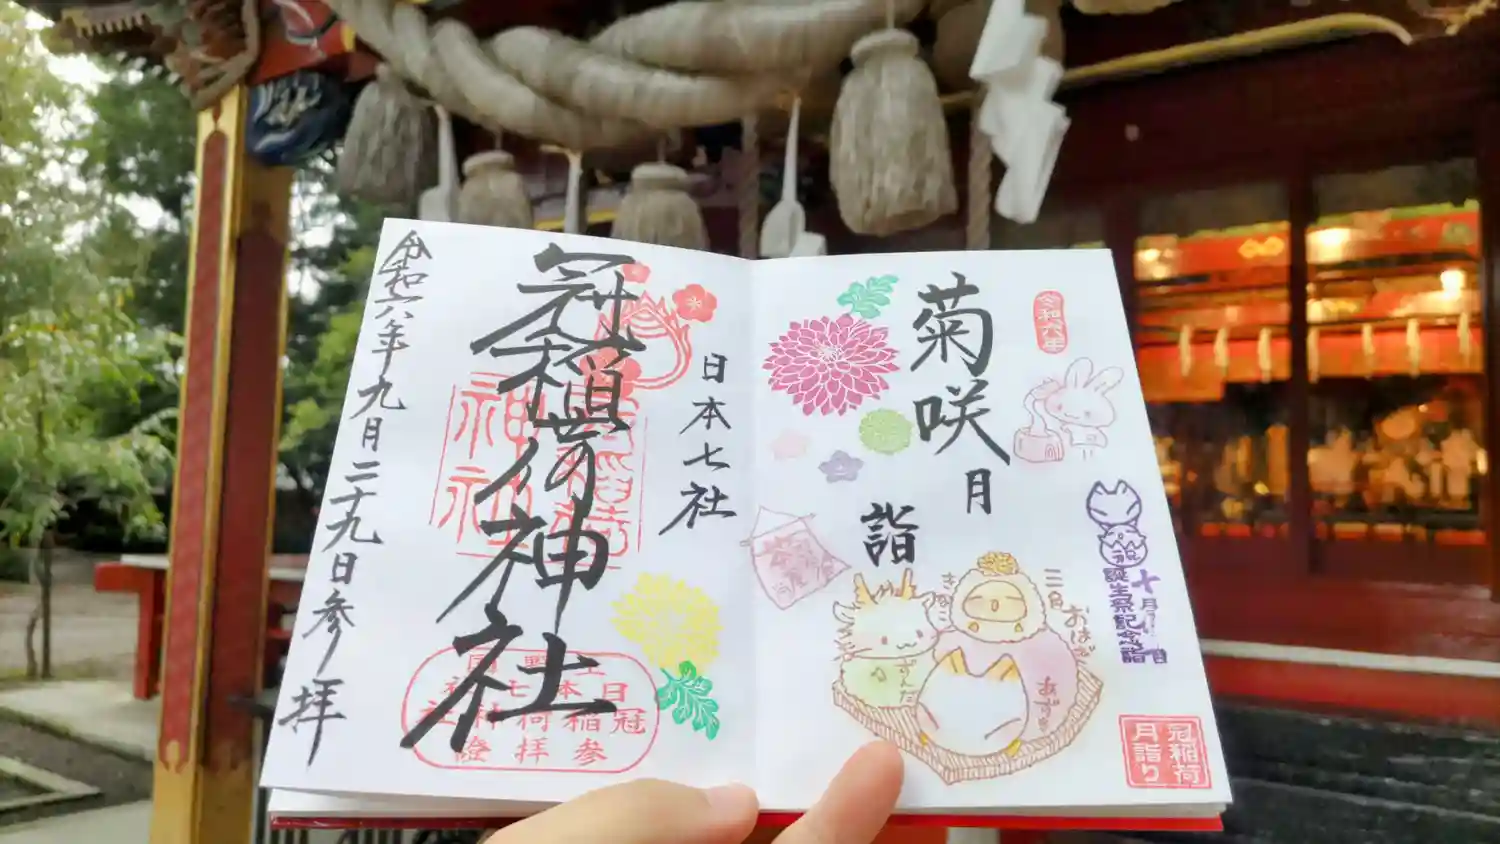 令和六年
菊咲月
詣
三色おはぎ
きなこ
ずんだ
あずき
十月
誕生祭記念詣
冠稲荷
月詣り
日本七社
冠稲荷神社
上野国
日本七社
冠稲荷神社
参拝證
令和六年九月二十九日参拝